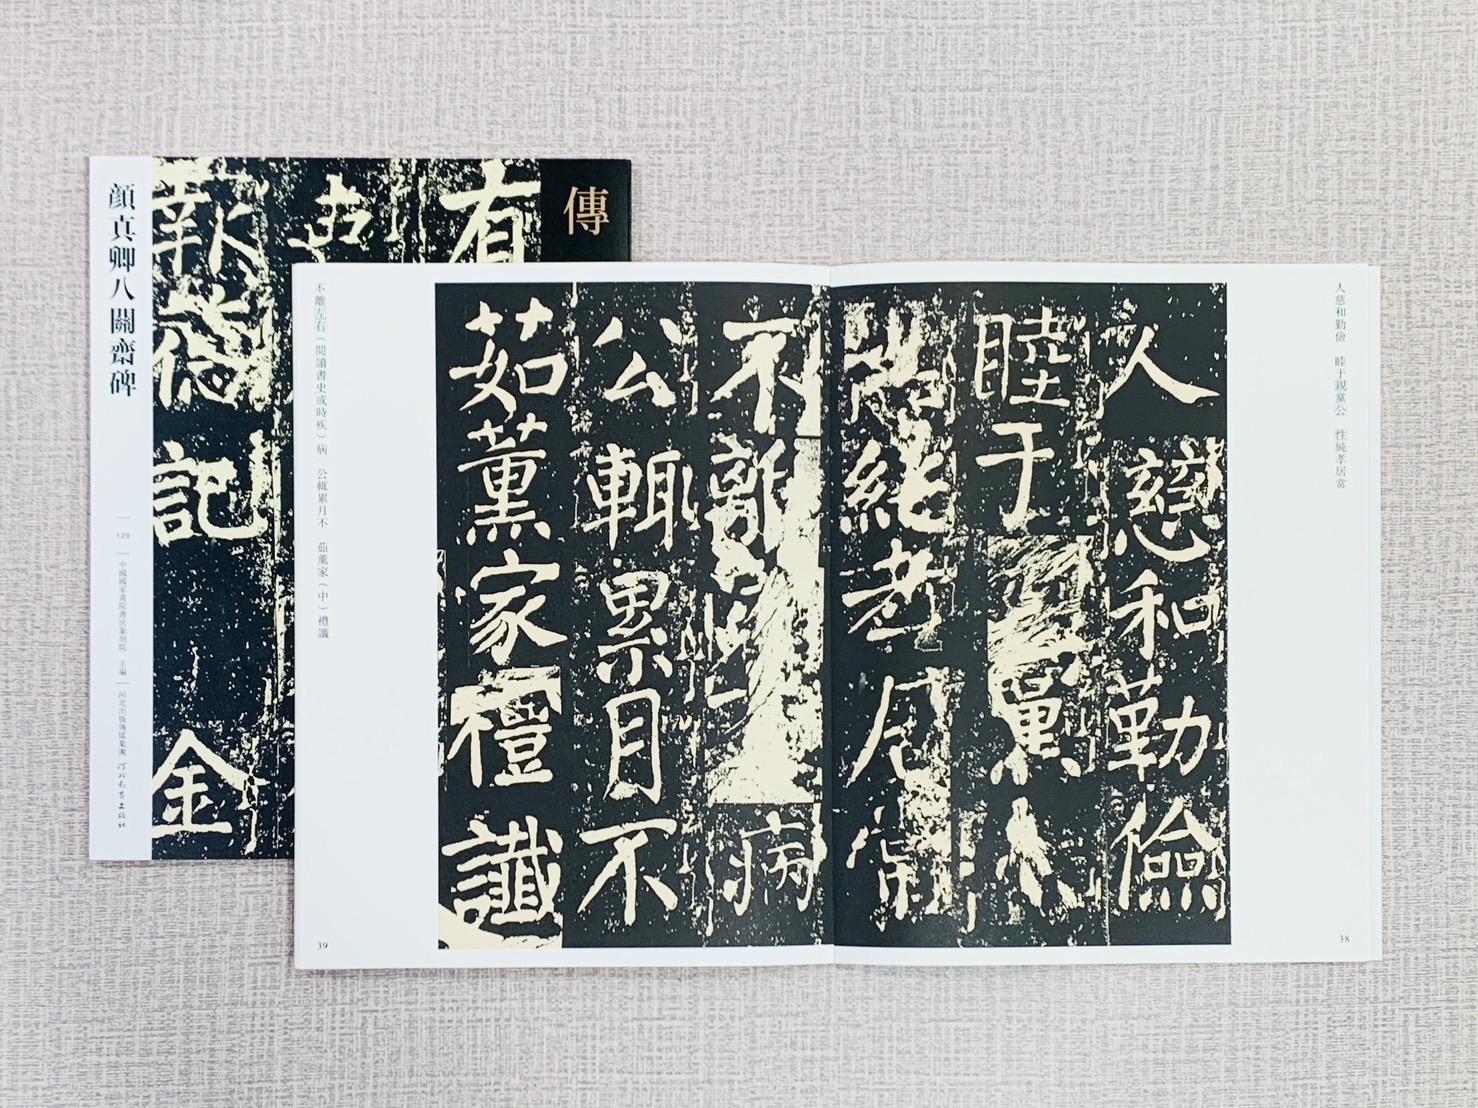 傳
有
報德記 金
顔真卿八關齋碑
129
中國國家畫院書法篆刻院 主編
河北出版傳媒集團
河北教育出版社
人慈和勤儉 睦于親黨公 性純孝居常
人慈和勤儉
睦于 黨公
性純孝居常
38
不離 病
公輒累月不
茹薰家禮讖
不離左右（閱讀書史或時疾）病 公輒累月不 茹薰家（中）禮讖
39